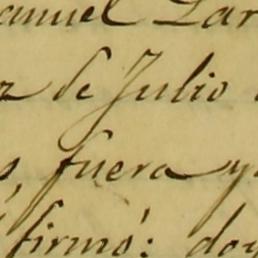 anuel Lar
z de Julio
s, fuera y
firmó: doy